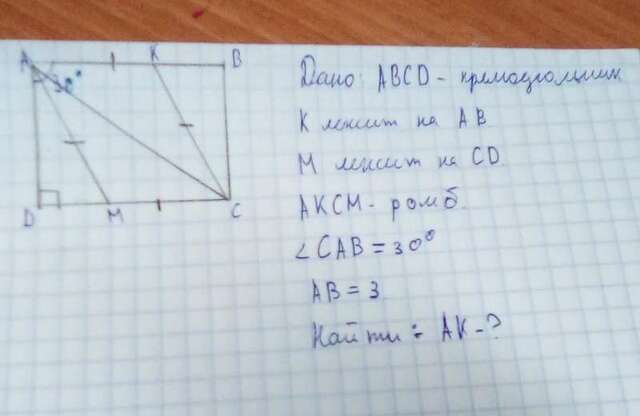 A K B
30°
D M C
Дано: ABCD - прямоугольник
K лежит на AB
M лежит на CD
AKCM - ромб.
∠CAB = 30°
AB = 3
Найти: AK - ?